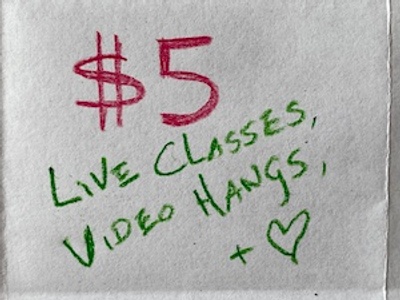 $5
LIVE CLASSES,
VIDEO HANGS,
+ ♡